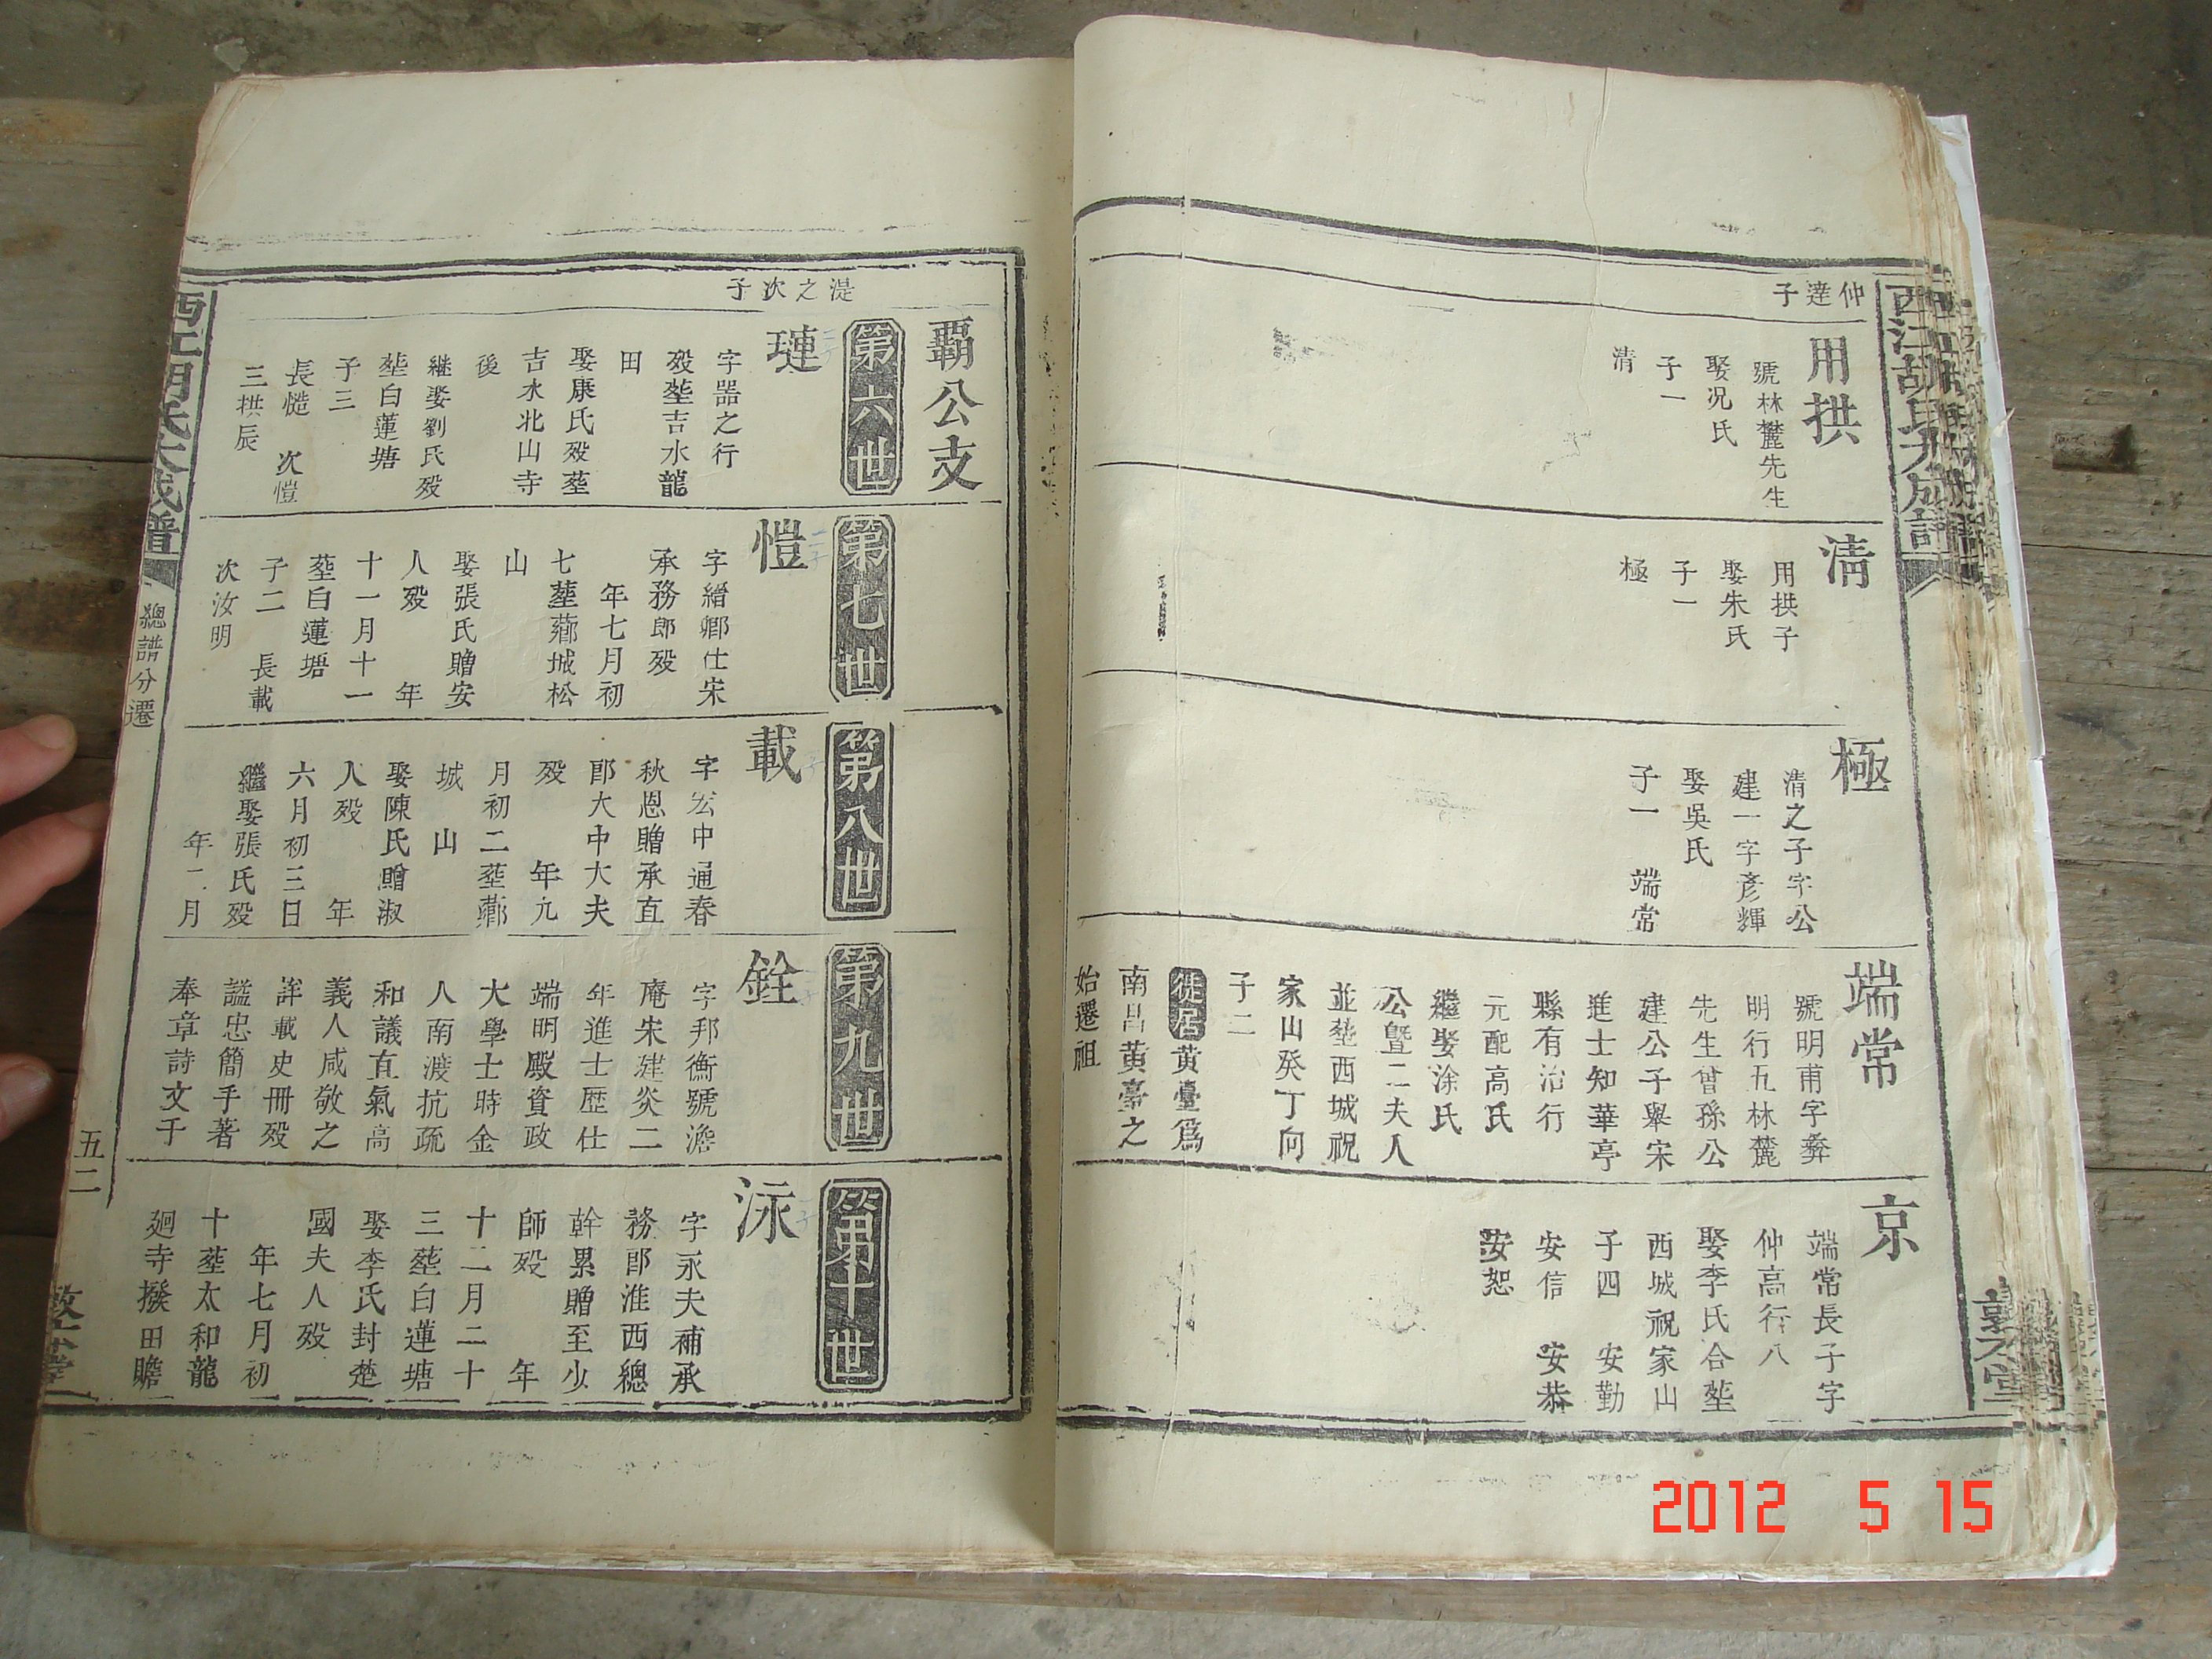 西江胡氏大成譜
仲達子
用拱
號林麓先生
娶況氏
子一
清
清
用拱子
娶朱氏
子一
極
極
清之子字公
建一字彥輝
娶吳氏
子一 端常
端常
號明甫字彝
明行五林麓
先生曾孫公
建公子舉宋
進士知華亭
縣有治行
元配高氏
繼娶涂氏
公暨二夫人
並塟西城祝
家山癸丁向
子二
徙居黃臺爲
南昌黃臺之
始遷祖
京
端常長子字
仲高行八
娶李氏合塟
西城祝家山
子四 安勤
安信 安恭
安恕
霸公支
湜之次子
第六世
璉
字器之行
歿塟吉水龍
田
娶康氏歿塟
吉水北山寺
後
継娶劉氏歿
塟白蓮塘
子三
長慥 次愷
三拱辰
第七世
愷
字縉卿仕宋
承務郎歿
年七月初
七塟薌城松
山
娶張氏贈安
人歿 年
十一月十一
塟白蓮塘
子二 長載
次汝明
第八世
載
字宏中通春
秋恩贈承直
郎大中大夫
歿 年九
月初二塟薌
城山
娶陳氏贈淑
人歿 年
六月初三日
繼娶張氏歿
年二月
第九世
銓
字邦衡號澹
庵朱建炎二
年進士歷仕
端明殿資政
大學士時金
人南渡抗疏
和議直氣高
義人咸敬之
詳載史冊歿
謚忠簡手著
奉章詩文于
第十世
泳
字永夫補承
務郎淮西總
幹累贈至少
師歿 年
十二月二十
三塟白蓮塘
娶李氏封楚
國夫人歿
年七月初
十塟太和龍
廻寺撥田贍
西江胡氏大成譜
總譜分遷
五二